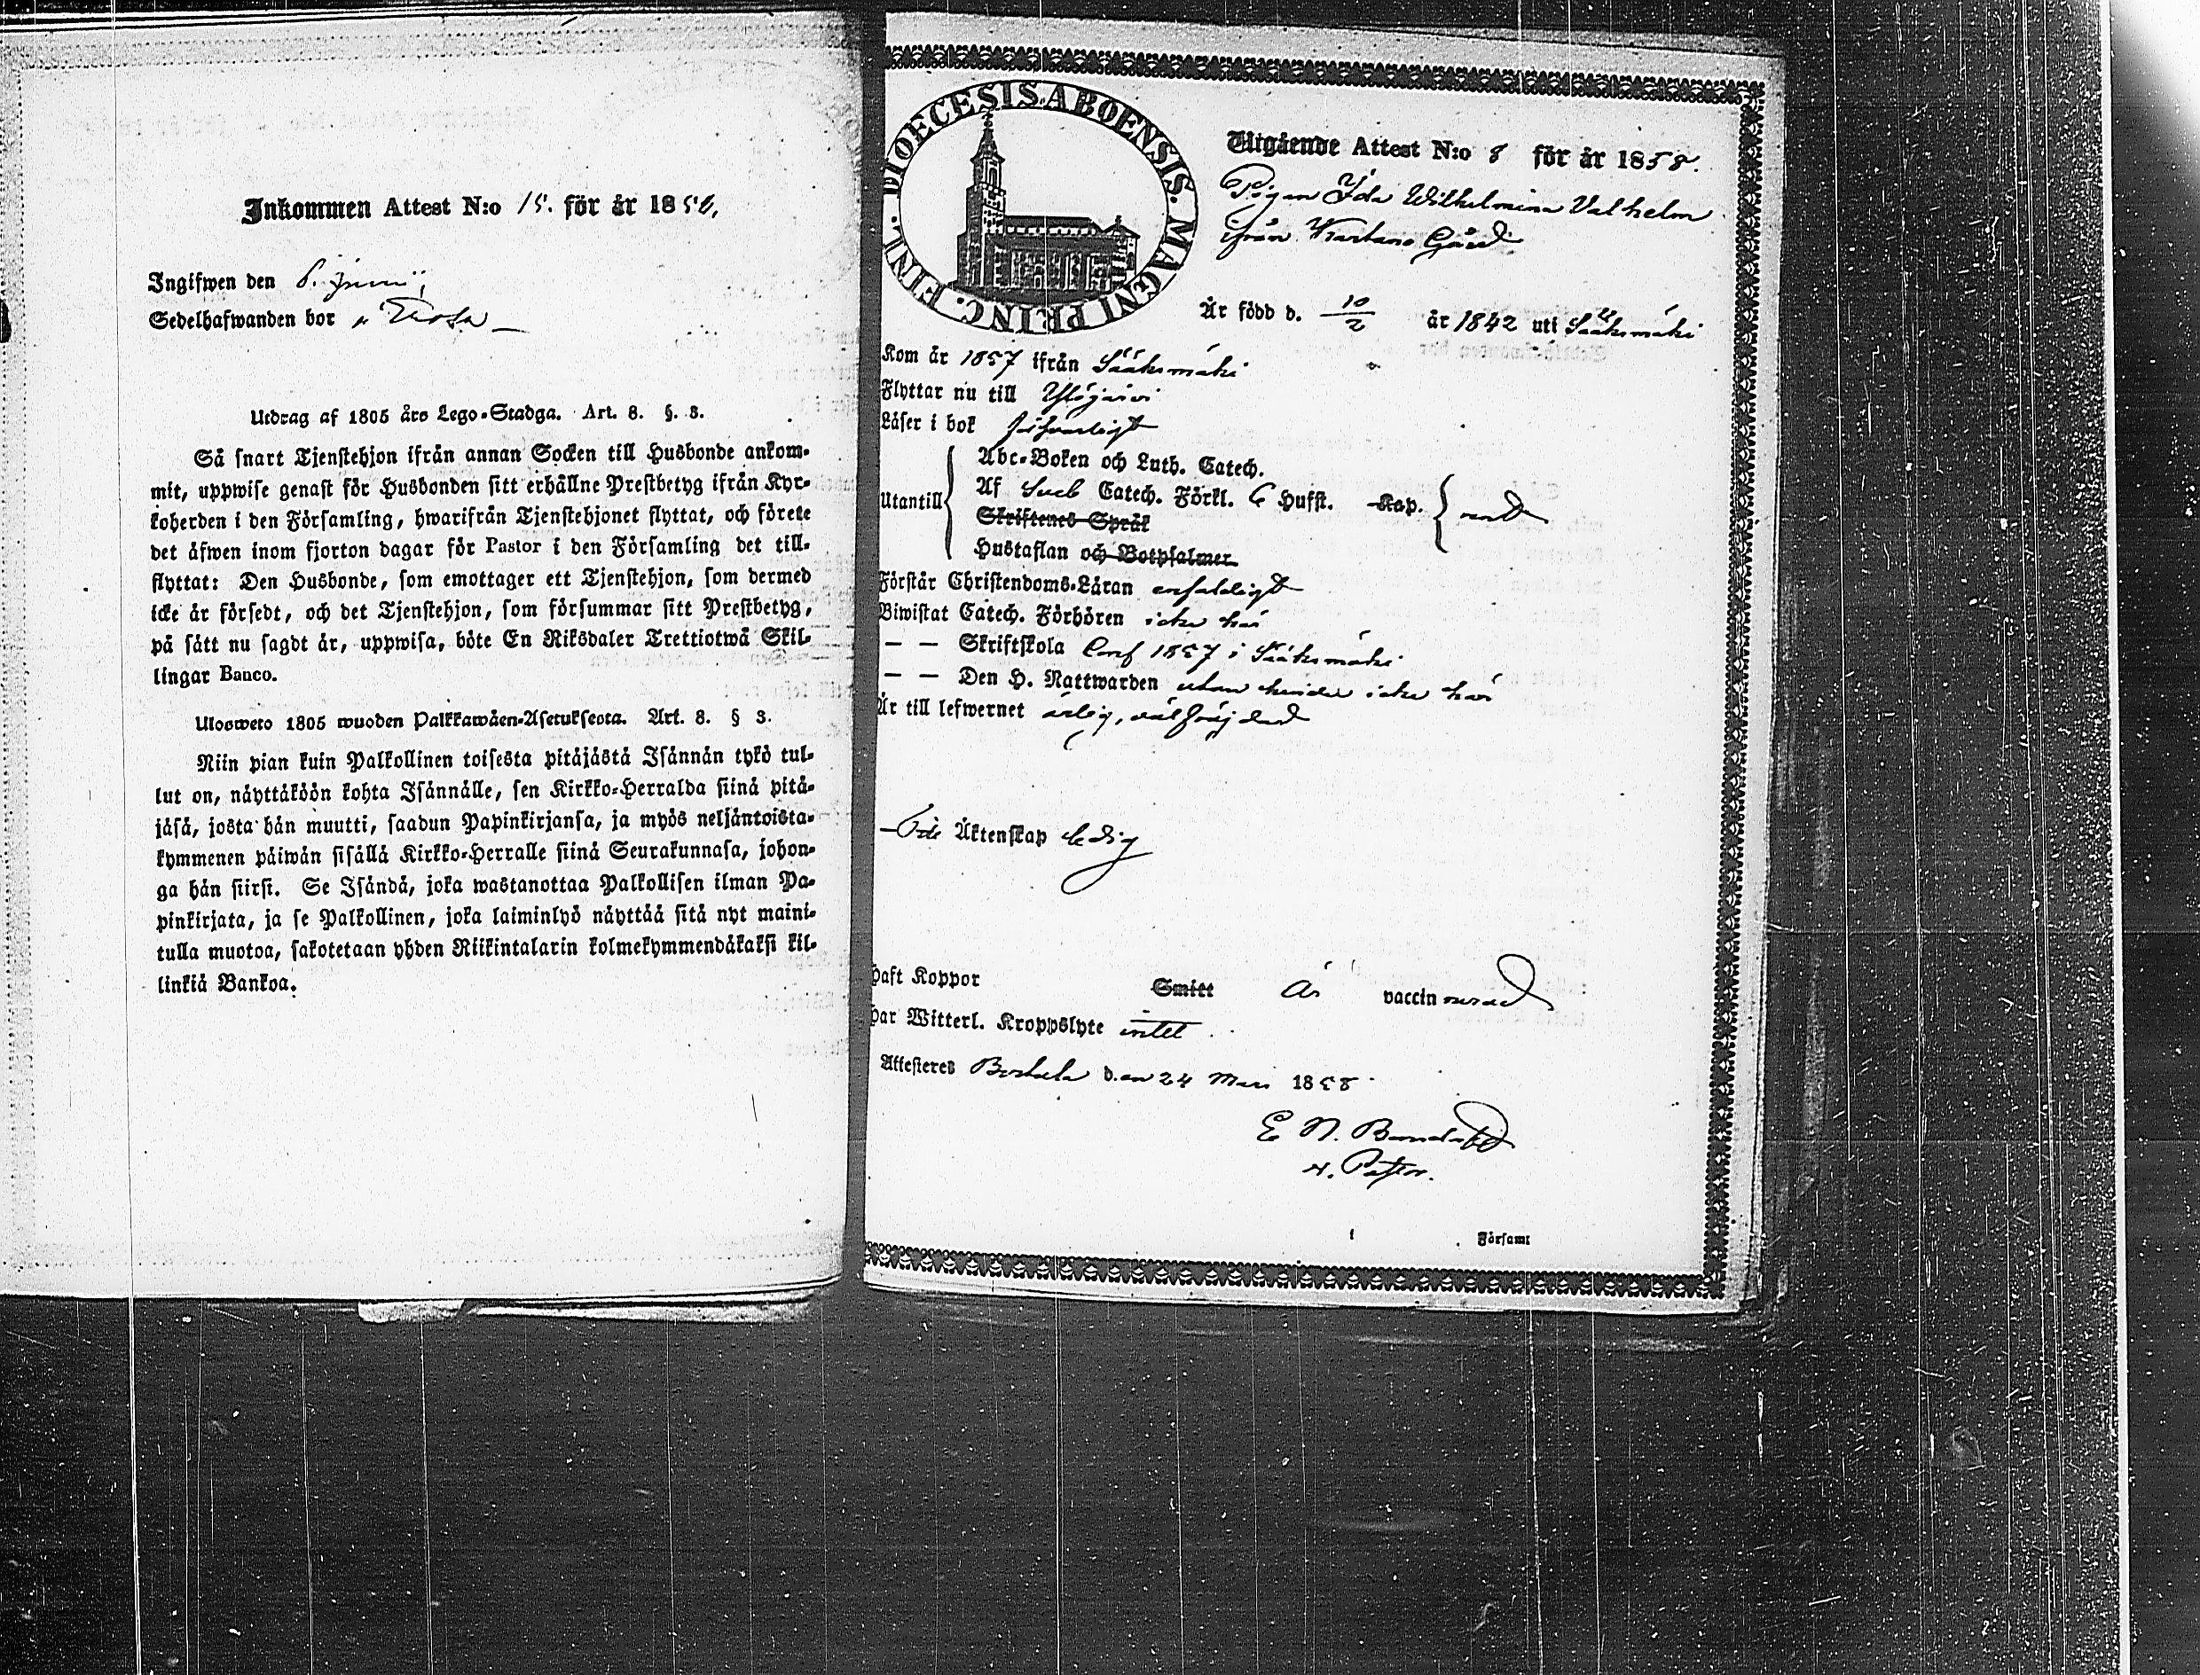 Inkommen Attest N:o 15. för år 1856.
Ingifwen den 8. Junii,
Sedelhafwanden bor
Utdrag af 1805 års Lego-Stadga. Art. 8. §. 3.
Så snart Tjenstehjon ifrån annan Socken till Husbonde ankom-
mit, uppwise genast för Husbonden sitt erhållne Prestbetyg ifrån Kyr-
koherden i den Församling, hwarifrån Tjenstehjonet flyttat, och förete
det äfwen inom fjorton dagar för Pastor i den Församling det till-
flyttat: Den Husbonde, som emottager ett Tjenstehjon, som dermed
icke är försedt, och det Tjenstehjon, som försummar sitt Prestbetyg,
på sätt nu sagdt är, uppwisa, böte En Riksdaler Trettiotwå Skil-
lingar Banco.
Ulosweto 1805 wuoden Palkkawäen-Asetuksesta. Art. 8. § 3.
Niin pian kuin Palkollinen toisesta pitäjästä Isännän tykö tul-
lut on, näyttäköön kohta Isännälle, sen Kirkko-Herralda siinä pitä-
jäsä, josta hän muutti, saadun Papinkirjansa, ja myös neljäntoista-
kymmenen päiwän sisällä Kirkko-Herralle siinä Seurakunnasa, johon-
ga hän siirsi. Se Isändä, joka wastanottaa Palkollisen ilman Pa-
pinkirjata, ja se Palkollinen, joka laiminlyö näyttää sitä nyt maini-
tulla muotoa, sakotetaan yhden Riikintalarin kolmekymmendäkaksi kil-
linkiä Bankoa.
DIOECESIS ABOENSIS. MAGNI PRINC. FINL.
Utgående Attest N:o 8 för år 1858.
Pigan Ida Wilhelmina Valhelm
ifrån Kartano Gård
Är född d. 10/2 år 1842 uti Sääksmäki
Kom år 1857 ifrån Sääksmäki
Flyttar nu till Ylöjärvi
Läser i bok försvarligt
Abc-Boken och Luth. Catech.
Utantill Af Sveb Catech. Förkl. 6 Hufst. Kap.
Skriftenes Språk
Hustaflan och Botpsalmer
Förstår Christendoms-Läran enfaldigt
Biwistat Catech. Förhören icke här
— — Skriftskola Conf 1857 i Sääksmäki
— — Den H. Nattwarden utan hinder icke här
Är till lefwernet ärlig, välfräjdad
Till Äktenskap ledig
Haft Koppor Smitt Är vaccinerad
Har Witterl. Kroppslyte intet.
Attesteres d.en 24 Mars 1858.
E N.
v. Pastor.
Församl